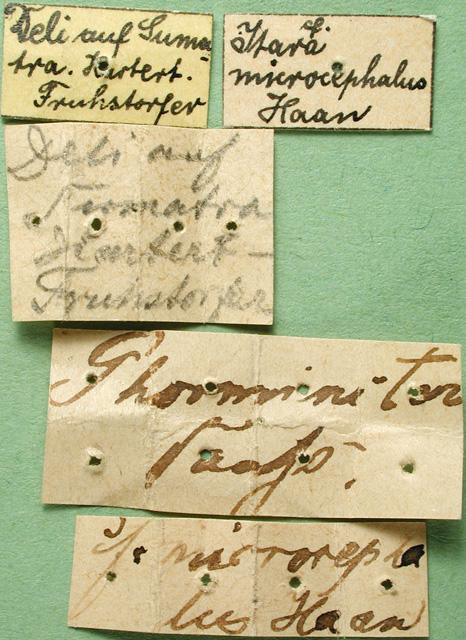 Deli auf Suma
tra. Hartert.
Fruhstorfer
Itara
microcephalus
Haan
Deli auf
Sumatra
Hartert -
Fruhstorfer
microcepha
lus Haan